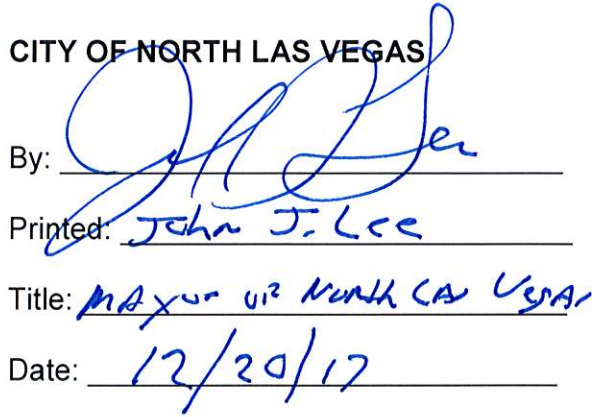 CITY OF NORTH LAS VEGAS
By: John J Lee
Printed: John J. Lee
Title: Mayor of North Las Vegas
Date: 12/20/17